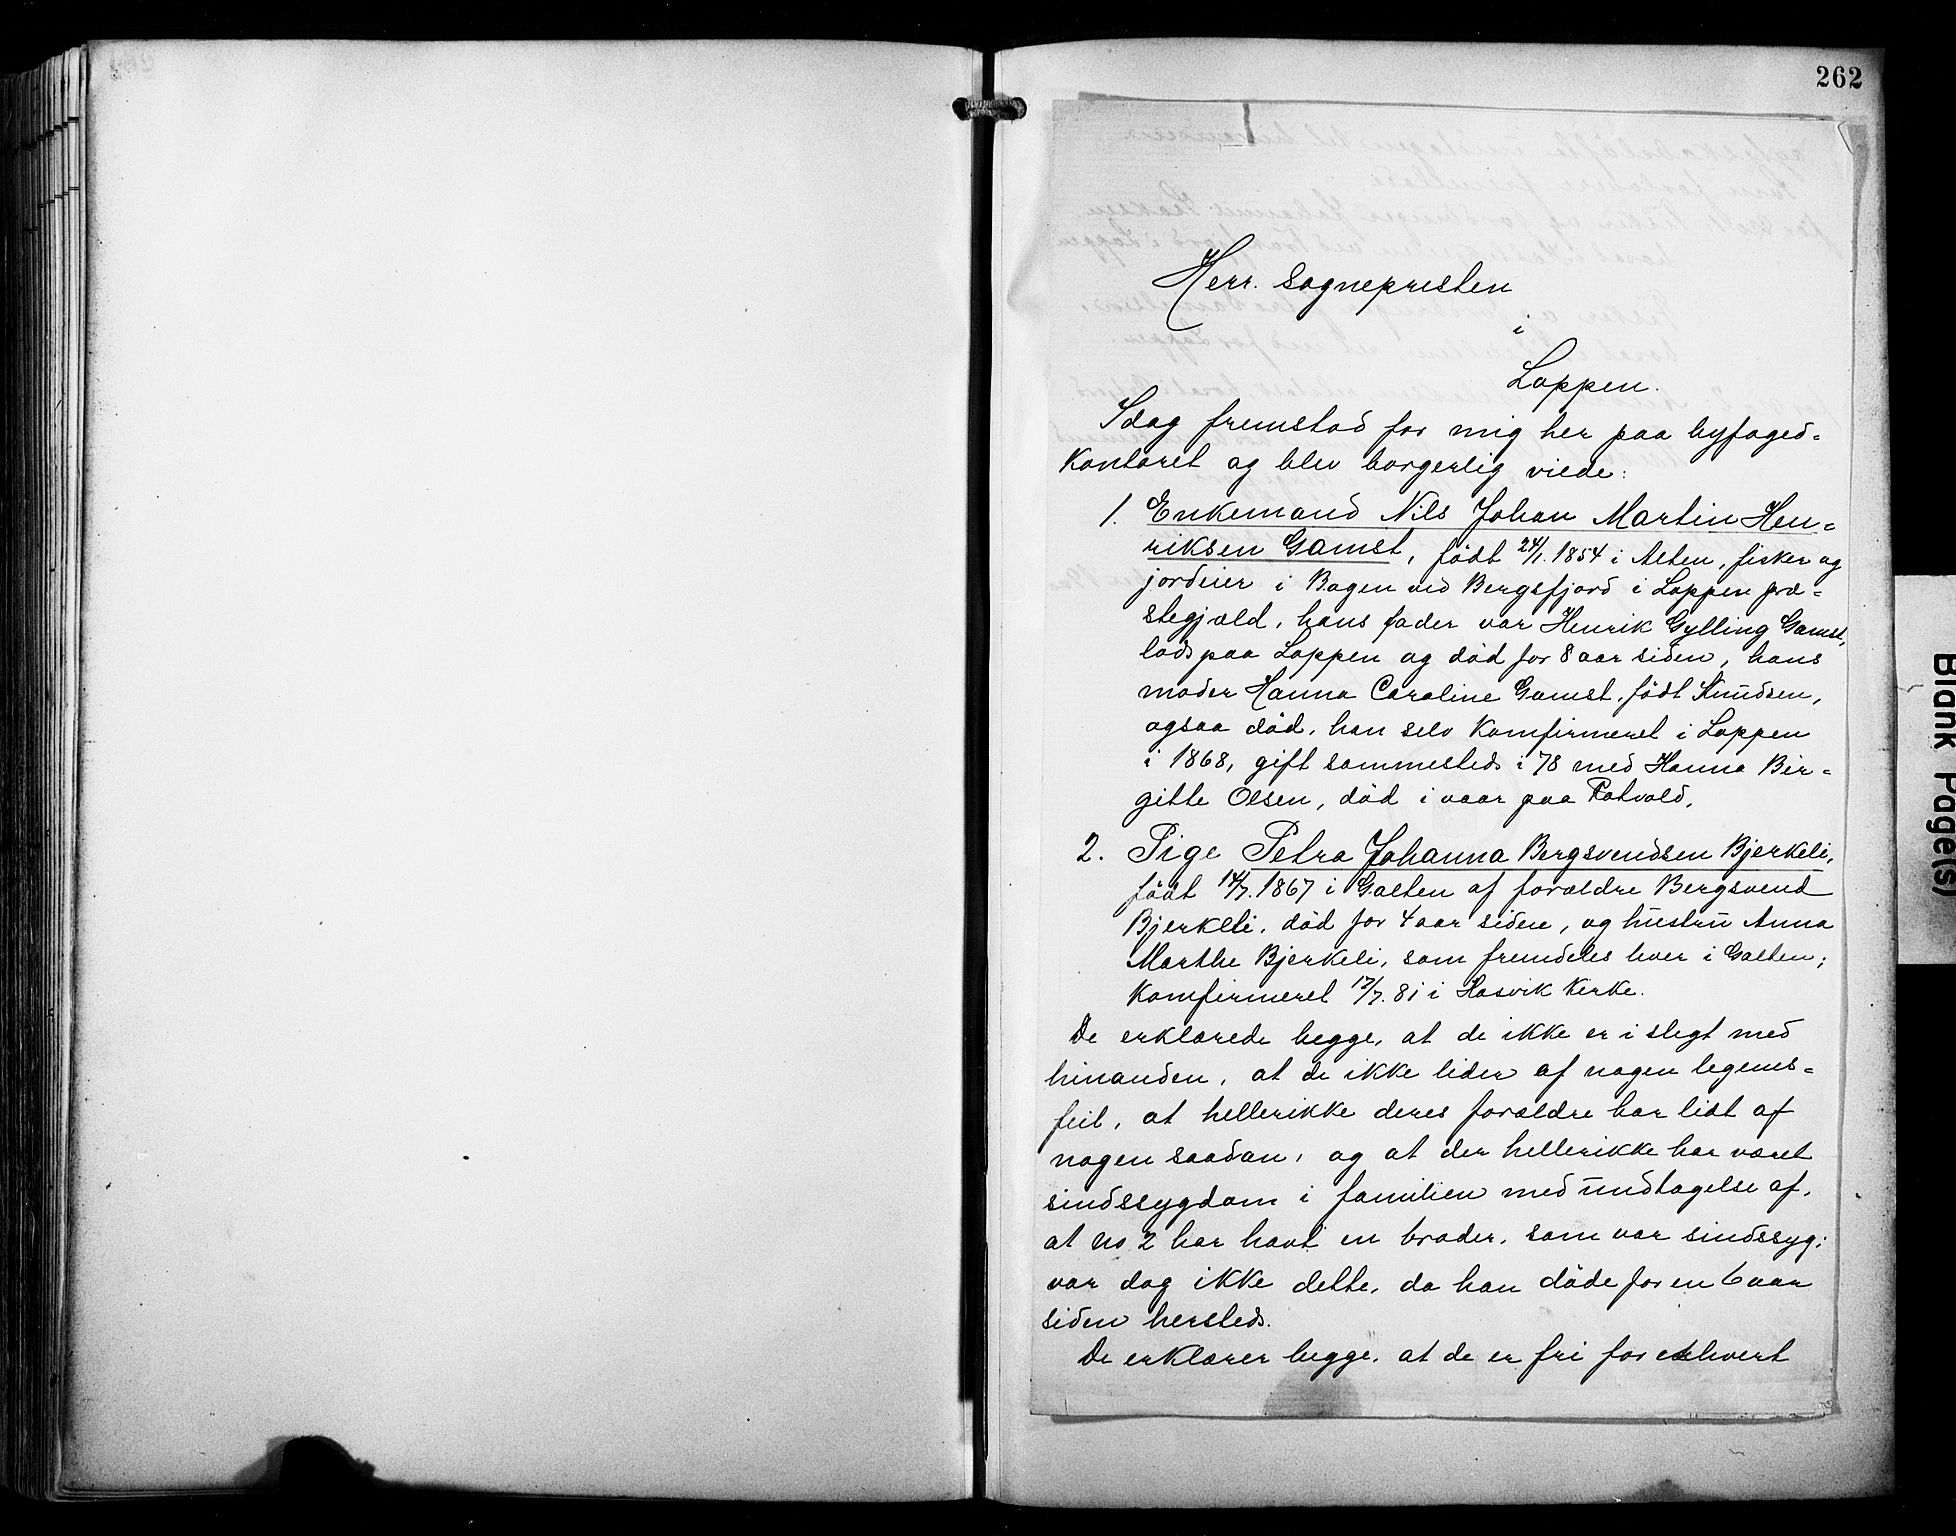 262
Herr. Sognepresten
i
Loppen.
Idag fremstod for mig her paa byfoged-
kontoret og blev borgerlig viede:
1. Enkemand Nils Johan Martin Hen-
riksen Gamst, födt 24/1. 1854 i Alten, fisker og
jordeier i Bogen ved Bergsfjord i Loppen præ-
stegjæld, hans fader var Henrik Gylling Gamst,
lods paa Loppen og död for 8 aar siden, hans
moder Hanna Caroline Gamst, födt Knudsen,
ogsaa död, han selv konfirmeret i Loppen
i 1868, gift sammesteds i 78 med Hanna Bir-
gitte Olsen, död i vaar paa Rotvold.
2. Pige Petra Johanna Bergsvendsen Bjerkeli,
födt 14/7. 1867 i Galten af forældre Bergsvend
Bjerkeli, död for 4 aar siden, og hustru Anna
Marthe Bjerkeli, som fremdeles lever i Galten;
konfirmeret 17/7. 81 i Hasvik kirke.
De erklærede begge, at de ikke er i slegt med
hinanden, at de ikke lider af nogen legems-
feil, at hellerikke deres forældre har lidt af
nogen saadan, og at der hellerikke har været
sindssygdom i familien med undtagelse af,
at no 2 har havt en broder, som var sindssyg;
var dog ikke dette, da han döde for en 6 aar
siden hersteds.
De erklærer begge, at de er fri for ethvert
Blank Page(s)